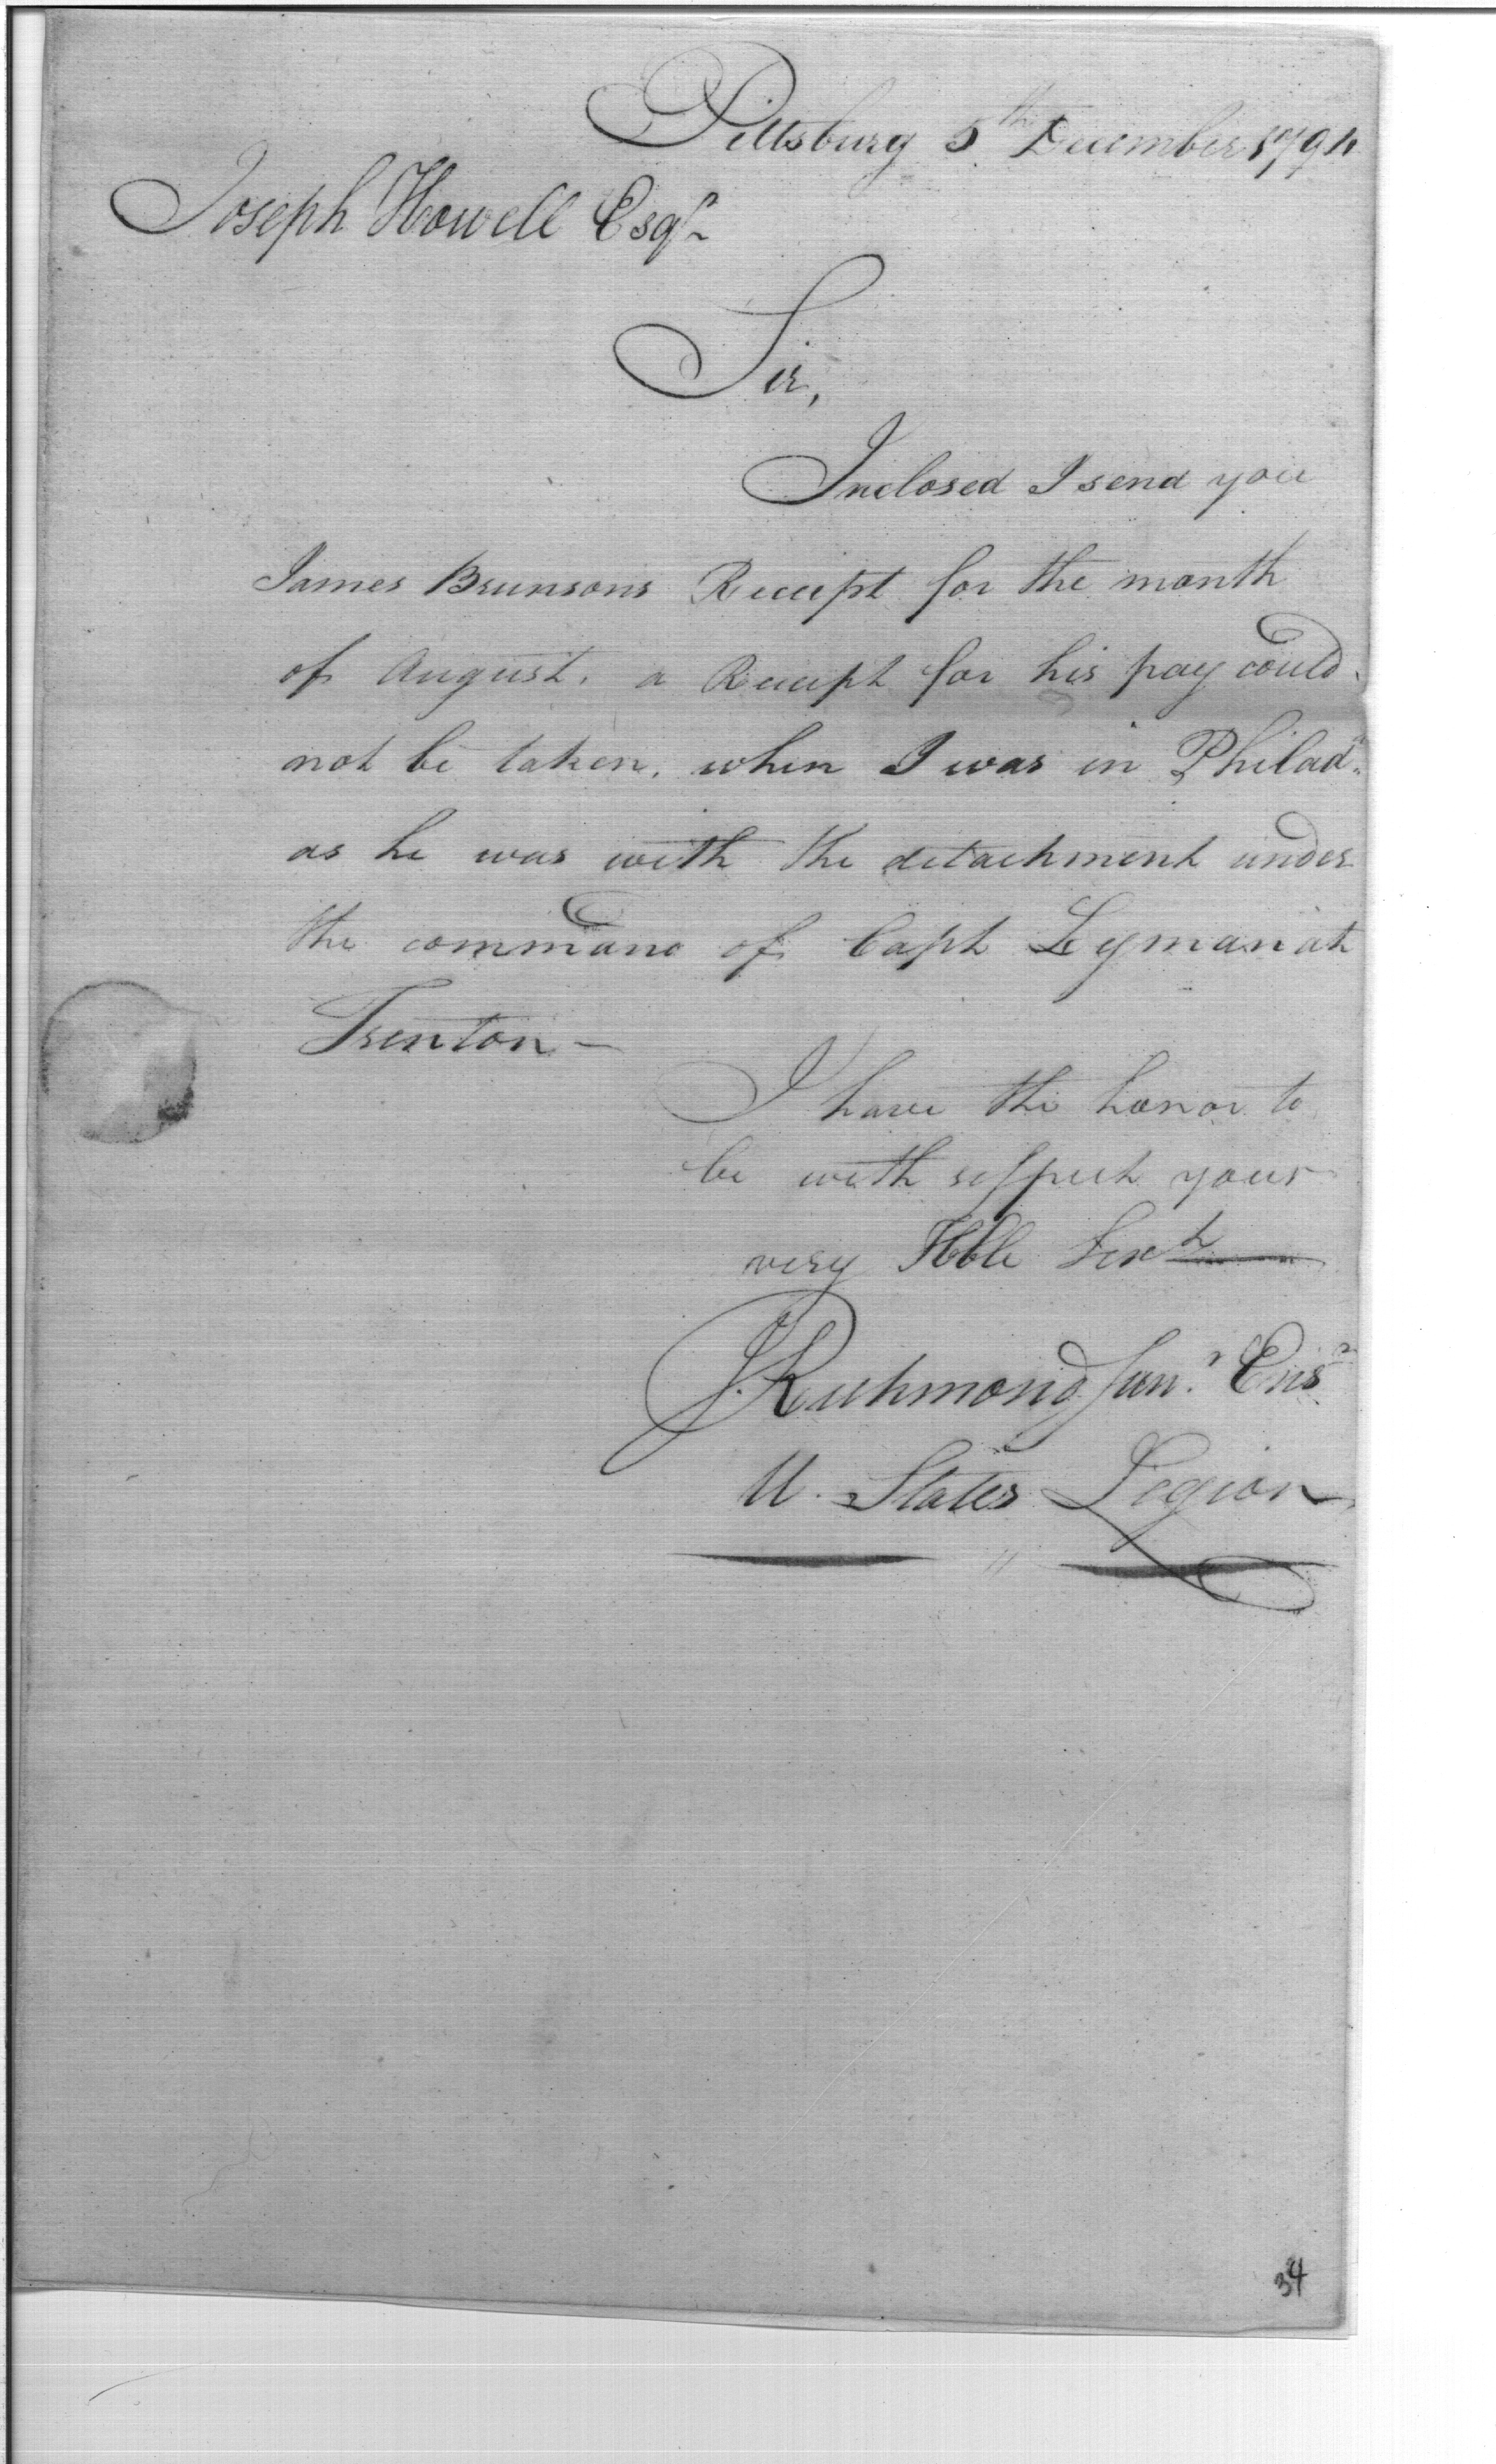 Pittsburg 5th December 1794
Joseph Howell Esqr
Sir,
Inclosed I send you
James Brunsons Receipt for the month
of August. a Receipt for his pay could
not be taken. when I was in Philada
as he was with the detachment under
the command of Capt Lyman at
Trenton —
I have the honor to
be with respect your
very Hble Servt
J. Richmond Junr Ensn
U. States Legion
34